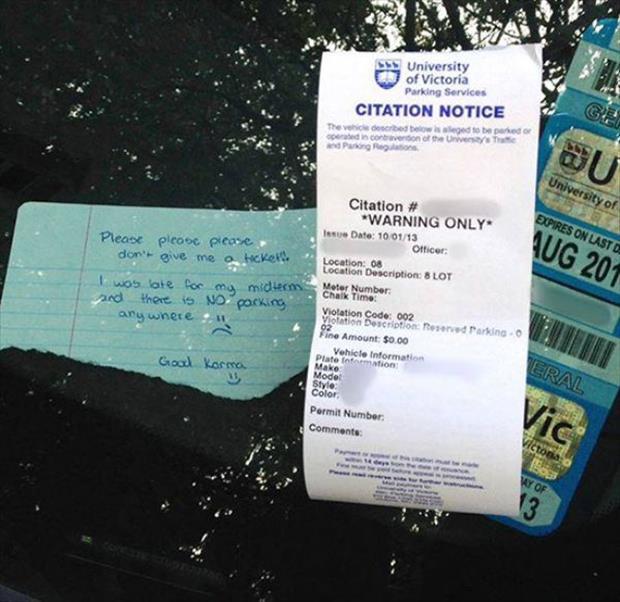 Please please please
don't give me a ticket!!
I was late for my midterm
and there is NO parking
anywhere
Good Karma
University
of Victoria
Parking Services
CITATION NOTICE
The vehicle described below is alleged to be parked or
operated in contravention of the University's Traffic
and Parking Regulations.
Citation #
*WARNING ONLY*
Issue Date: 10/01/13
Officer:
Location: 08
Location Description: 8 LOT
Meter Number:
Chalk Time:
Violation Code: 002
Violation Description: Reserved Parking - 0
02
Fine Amount: $0.00
Vehicle Information
Plate Information:
Make:
Model:
Style:
Color:
Permit Number:
Comments:
Payment or appeal of this citation must be made
within 14 days from the date of issuance.
Fine must be paid before appeal is processed.
Please read reverse side for further instructions.
Mail payment to:
University of Victoria
GE
U
University of
EXPIRES ON LAST D
AUG 201
ERAL
Vic
Victoria
AY OF
13